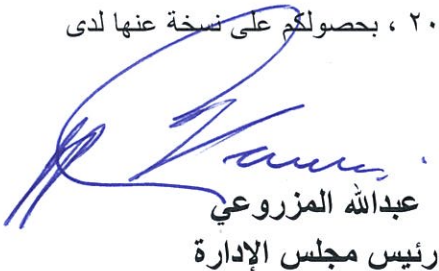 ٢٠ ، بحصولكم على نسخة عنها لدى
عبدالله المزروعي
رئيس مجلس الإدارة